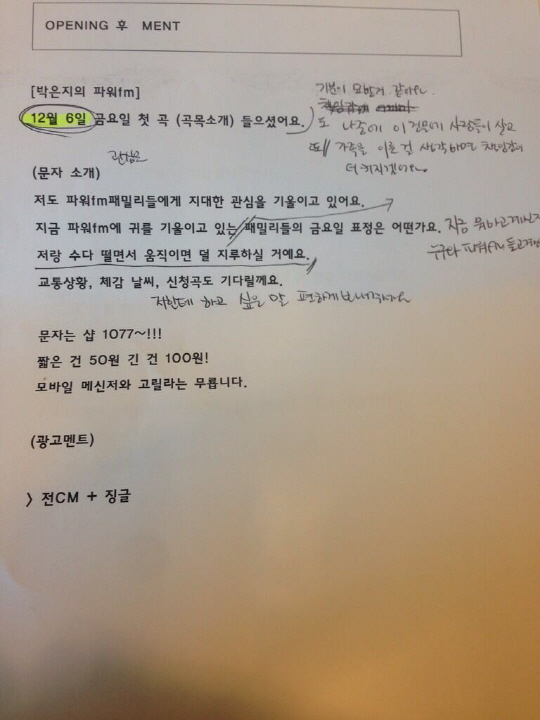 OPENING 후 MENT
[박은지의 파워fm]
기분이 묘한거 같아요.
12월 6일 금요일 첫 곡 (곡목소개) 들으셨어요.
또 나중에 이 건물에 사람들이 살고
또 가족을 이룬 걸 생각하면 책임감이
더 커지겠어요
관심은
(문자 소개)
저도 파워fm패밀리들에게 지대한 관심을 기울이고 있어요.
지금 파워fm에 귀를 기울이고 있는 패밀리들의 금요일 표정은 어떤가요. 지금 뭐하고계신지
누구랑 파워fm 듣고계신
저랑 수다 떨면서 움직이면 덜 지루하실 거예요.
교통상황, 체감 날씨, 신청곡도 기다릴께요.
저한테 하고 싶은 말 편하게 보내주세요
문자는 샵 1077~!!!
짧은 건 50원 긴 건 100원!
모바일 메신저와 고릴라는 무룝니다.
(광고멘트)
> 전CM + 징글